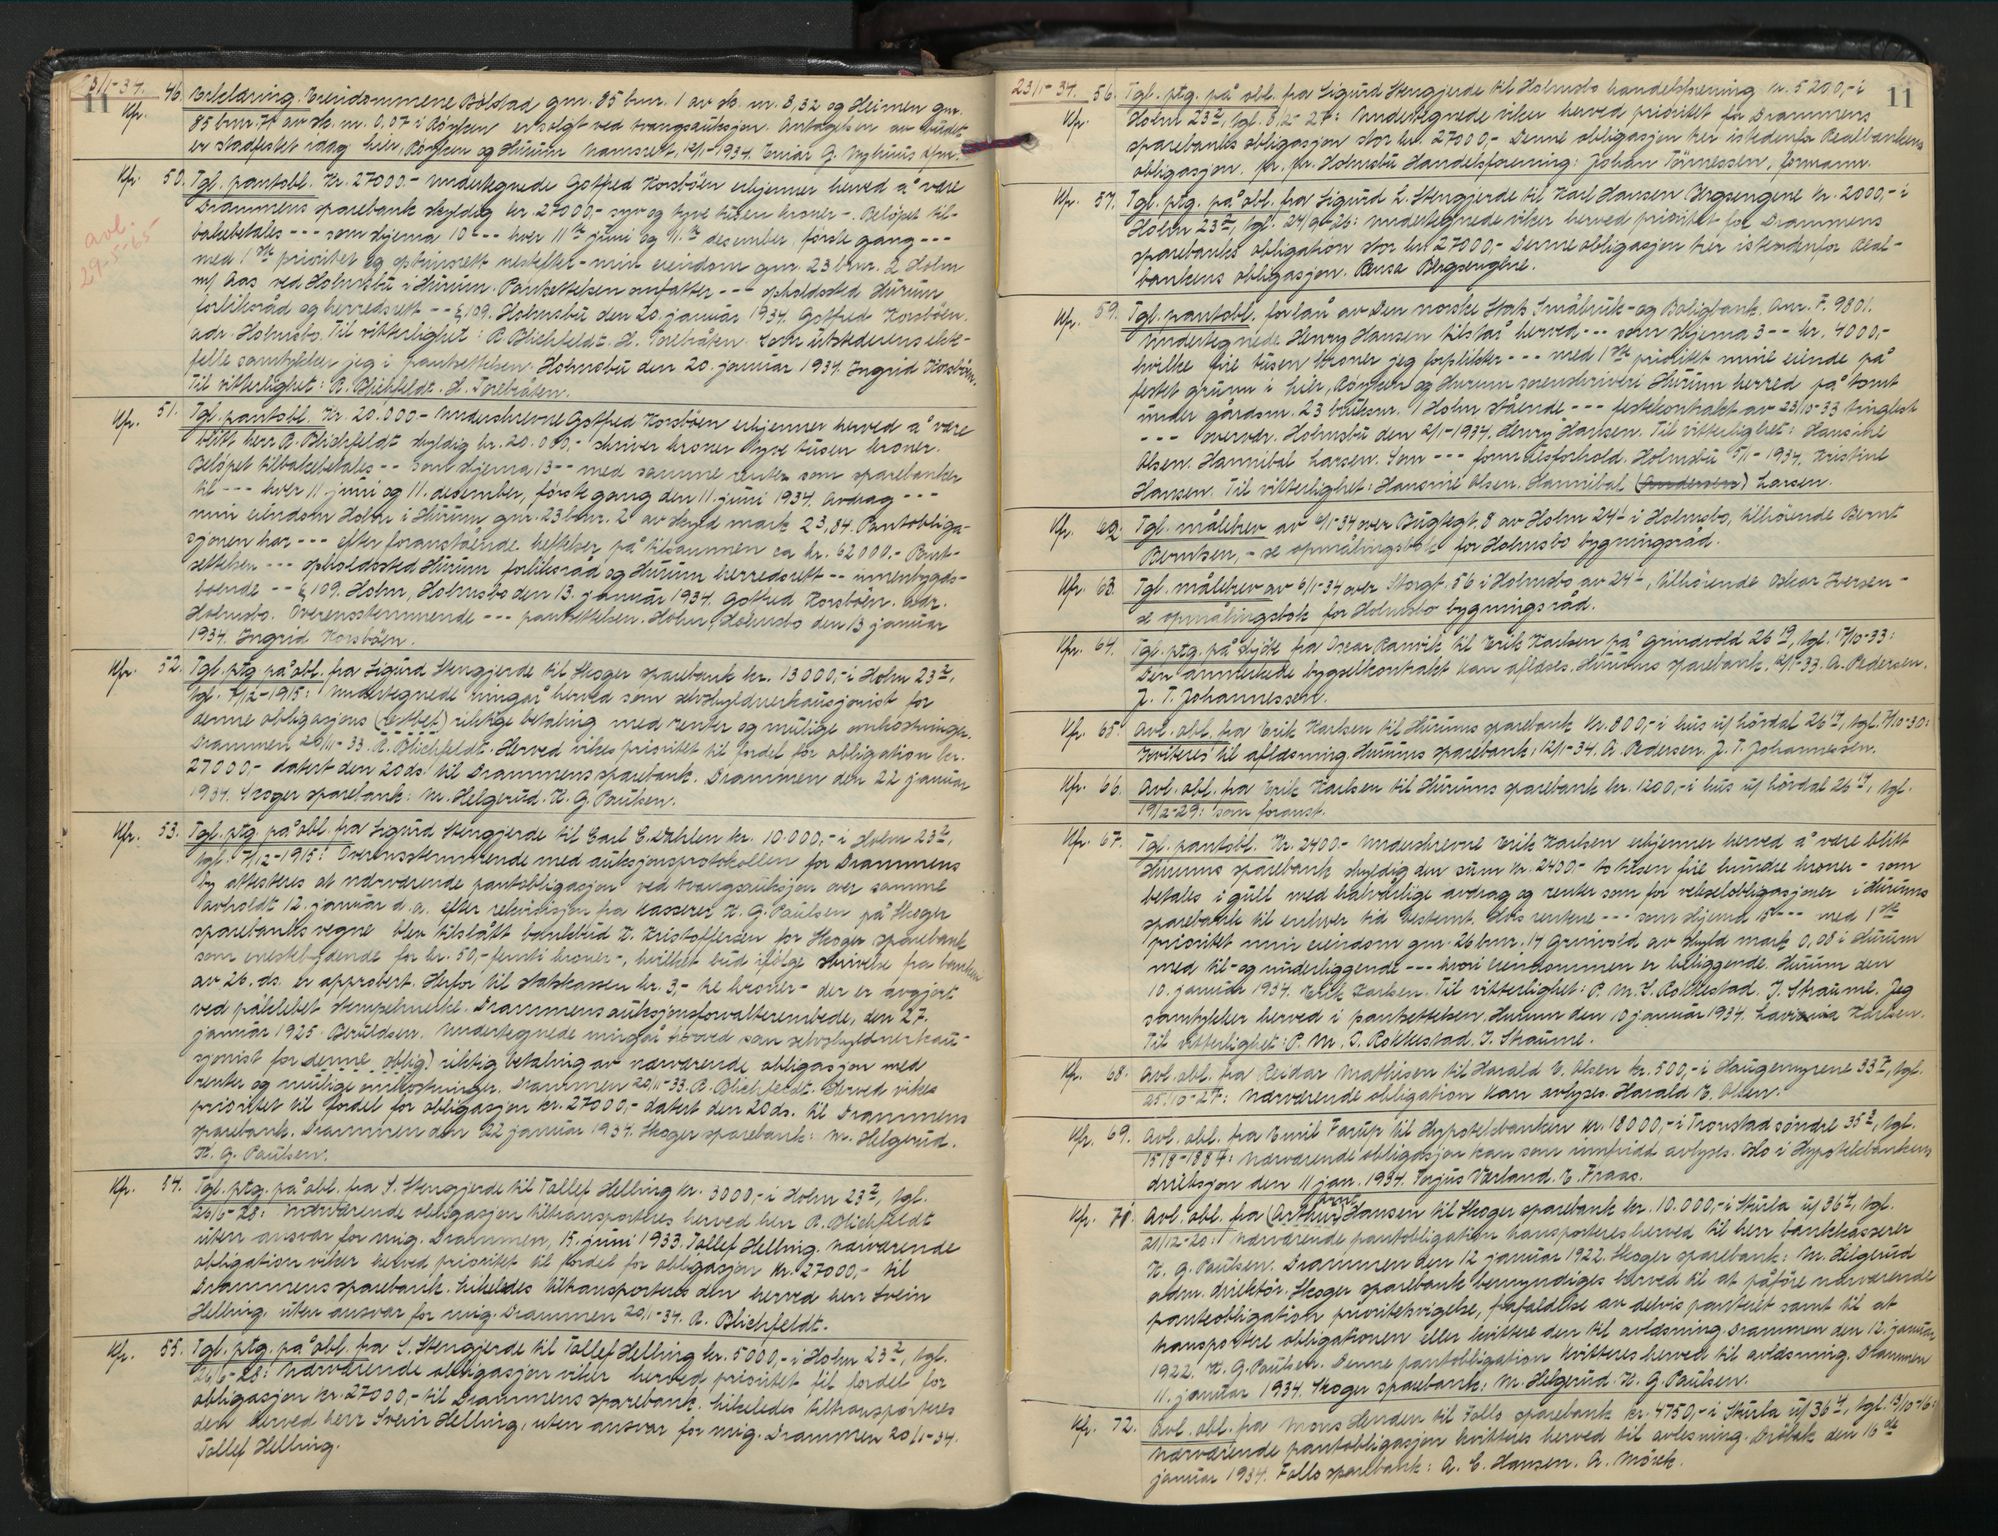 23/1-34.
11
Kfr. 46. Erklæring. Eiendommene Bölstad gnr. 85 bnr. 1 av sk. m. 8,32 og Heimen gnr.
85 bnr. 74 av sk. m. 0,07 i Röyken er solgt ved tvangsauksjon. Antagelsen av budet
er stadfestet idag hier, Röyken og Hurum namsrett, 12/1-1934. Einar G. Nyhuus
Kfr. 50. Tgl. pantobl. Kr. 27000.- Undertegnede Gotfred Korsböen erkjenner herved å være
Drammens sparebank skyldig kr. 27000,- syv og tyve tusen kroner-. Beløpet til-
avl.
29-5-65
bakebetales --- som skjema 10 --- hver 11te juni og 11te desember, første gang ---
med 1ste prioritet og optrinsrett nestefter - min eiendom gnr. 23 bnr. 2 Holm
m/ Aas ved Holmsbu i Hurum. Pantsettelsen omfatter --- opholdssted Hurum
forliksråd og herredsrett -- § 109. Holmsbu den 20. januar 1934. Gotfred Korsböen.
adr. Holmsbo. Til vitterlighet: R. Blichfeldt. H. Torebråten. Som utstederens ekte-
felle samtykker jeg i pantsettelsen. Holmsbu den 20. januar 1934. Ingrid Korsböen.
Til vitterlighet: R. Blichfeldt. H. Torebråten.
Kfr. 51. Tgl. pantobl. Kr. 20.000- Underskrevne Gotfred Korsböen erkjenner herved å være
blitt herr R. Blichfeldt skyldig kr. 20.000,- skriver kroner tyve tusen kroner.
Beløpet tilbakebetales -- som skjema 13 -- med samme renter som sparebanker
til --- hver 11 juni og 11. desember, første gang den 11. juni 1934. Avdrag ---
min eiendom Holm i Hurum, gnr. 23 bnr. 2 av skyld mark 23,84. Pantobliga-
sjonen har --- efter foranstående heftelser på tilsammen ca kr. 62000.- Pant-
settelsen --- opholdssted Hurum forliksråd og Hurum herredsrett -- innenbygds-
boende -- § 109. Holm, Holmsbo den 13. januar 1934. Gotfred Korsböen. adr.
Holmsbo. Overensstemmende --- pantsettelsen. Holm, Holmsbo den 13 januar
1934. Ingrid Korsböen.
Kfr. 52. Tgl. ptg. på obl. fra Sigurd Stengjerde til Skoger sparebank kr. 13000,- i Holm 23/2,
tgl. 7/12-1915: Undertegnede inngår herved som selvskyldnerkausjonist for
denne obligasjons (rettbet) riktige betaling med renter og mulige omkostninger.
Drammen 20/11-33. R. Blichfeldt. Herved vikes prioritet til fordel for obligation kr.
27000,- datert den 20 ds. til Drammens sparebank. Drammen den 22 januar
1934. Skoger sparebank: M. Helgerud. K. G. Paulsen.
Kfr. 53. Tgl. ptg. på obl. fra Sigurd Stengjerde til Carl E. Dahlen kr. 10.000,- i Holm 23/2,
tgl. 7/12-1915: Overensstemmende med auksjonsprotokollen for Drammens
by attesteres at nærværende pantobligasjon ved tvangsauksjon over samme
avholdt 12. januar d.a. efter rekvisisjon fra kasserer K. G. Paulsen på Skoger
sparebanks vegne blev tilslått bankbud K. Kristoffersen for Skoger sparebank
som meistbydende for kr. 50,- femti kroner-, hvilket bud ifølge skrivelse fra banken
av 26. ds. er approbert. Herfor til statskassen kr. 3,- tre kroner - der er avgjort
ved påklebet stempelmerke. Drammens auksjonsforvalterembede, den 27.
januar 1925. Beruldsen. Undertegnede inngår herved som selvskyldnerkau-
sjonist for denne oblig) riktig betaling av nærværende obligasjon med
renter og mulige omkostninger. Drammen 20/11-33. R. Blichfeldt. Herved vikes
prioritet til fordel for obligasjon kr. 27000,- datert den 20 ds. til Drammens
sparebank. Drammen den 22 januar 1934. Skoger sparebank: M. Helgerud.
K. G. Paulsen.
Kfr. 54. Tgl. ptg. på obl. fra S. Stengjerde til Tollef Helling kr. 3000,- i Holm 23/2, tgl.
26/6-28: Nærværende obligasjon tiltransporteres herved herr R. Blichfeldt
uten ansvar for mig. Drammen, 15. juni 1933. Tollef Helling. Nærværende
obligation viker herved prioritet til fordel for obligasjon kr. 27000,- til
Drammens sparebank. Likeledes tiltransporteres den herved herr Svein
Helling, uten ansvar for mig. Drammen 20/1-34. R. Blichfeldt.
Kfr. 55. Tgl. ptg. på obl. fra S. Stengjerde til Tollef Helling kr. 5000,- i Holm 23/2, tgl.
26/6-28: Nærværende obligasjon viker herved prioritet til fordel for
obligasjon kr. 27000,- til Drammens sparebank. Likeledes tiltransporteres
den herved herr Svein Helling, uten ansvar for mig. Drammen 20/1-34.
Tollef Helling.
23/1-34.
11
Kfr. 56. Tgl. ptg. på obl. fra Sigurd Stengjerde til Holmsbo handelsforening kr. 5200,- i
Holm 23/2, tgl. 8/2-27: Undertegnede viker herved prioritet for Drammens
sparebanks obligasjon stor kr. 27000,- Denne obligasjon trer istedenfor Realbankens
obligasjon. pr. pr. Holmsbu Handelsforening: Johan Tönnessen, formann.
Kfr. 57. Tgl. ptg. på obl. fra Sigurd L. Stengjerde til Karl Hansen Bergsengene kr. 2000,- i
Holm 23/2, tgl. 24/9-26: Undertegnede viker herved prioritet for Drammens
sparebanks obligation stor kr. 27000,- Denne obligasjon trer istedenfor Real-
bankens obligasjon. Bensa Bergsengene.
Kfr. 59. Tgl. pantobl. for lån av Den norske Stats Småbruk- og Boligbank. Anr. F. 9801.
Undertegnede Henry Hansen tilstår herved --- som skjema 3 -- kr. 4000,-
hvilke fire tusen kroner jeg forplikter --- med 1ste prioritet mine eiende på
festet grunn i hier, Röyken og Hurum sorenskriveri Hurum herred på tomt
under gårdsnr. 23 bruksnr. 1 Holm stående --- festekontrakt av 23/10-33 tinglest
--- overdr. Holmsbu den 2/1-1934. Henry Hansen. Til vitterlighet: Hansine
Olsen. Hannibal Larsen. Som --- formuesforhold. Holmsbu 5/1-1934. Kristine
Hansen. Til vitterlighet: Hansine Olsen. Hannibal (Andersen) Larsen.
Kfr. 62. Tgl. målebrev av 6/1-34 over Bugtegt. 8 av Holm 24/1 i Holmsbo, tilhörende Bernt
Berntsen, - se opmålingsbok for Holmsbo bygningsråd.
Kfr. 63. Tgl. målebrev av 6/1-34 over Storgt. 56 i Holmsbo av 24/-, tilhörende Oskar Iversen -
se opmålingsbok for Holmsbo bygningsråd.
Kfr. 64. Tgl. ptg. på skjöte fra Oscar Ramvik til Erik Karlsen på Grindvold 26/19, tgl. 17/10-33:
Den anmerkede bygselkontrakt kan aflöses. Hurums sparebank, 12/1-33. A. Pedersen.
J. T. Johannessen.
Kfr. 65. Avl. obl. fra Erik Karlsen til Hurums sparebank kr. 800,- i hus u/ hördal 26/14, tgl. 7/10-30:
Kvitteres til aflæsning. Hurums sparebank, 12/1-34. A. Pedersen. J. T. Johannessen.
Kfr. 66. Avl. obl. fra Erik Karlsen til Hurums sparebank kr. 1200,- i hus u/ hördal 26/14, tgl.
19/2-29: som foranst.
Kfr. 67. Tgl. pantobl. Kr. 2400.- Underskrevne Erik Karlsen erkjenner herved å være blitt
Hurums sparebank skyldig den sum kr. 2400.- to tusen fire hundre kroner - som
betales i gull med halvårlige avdrag og renter som for vekselobligasjoner i Hurums
sparebank til enhver tid bestemt. Hvis rentene --- som skjema 15 --- med 1ste
prioritet min eiendom gnr. 26 bnr. 14 Grinvold av skyld mark 0,08 i Hurum
med til- og underliggende --- hvori eiendommen er beliggende. Hurum den
10. januar 1934. Erik Karlsen. Til vitterlighet: P. M. S. Rokkestad. J. Straume. Jeg
samtykker herved i pantsettelsen. Hurum den 10 januar 1934. Lavinia Karlsen.
Til vitterlighet: P. M. S. Rokkestad. J. Straume.
Kfr. 68. Avl. obl. fra Reidar Mathisen til Harald E. Olsen kr. 500,- i Haugemyrene 33/7, tgl.
25/10-27: Nærværende obligation kan avlyses. Harald E. Olsen.
Kfr. 69. Avl. obl. fra Emil Farup til Hypotekbanken kr. 18000,- i Tronstad söndre 35/2, tgl.
15/8-1887: Nærværende obligasjon kan som innfridd avlyses. Oslo i Hypotekbankens
direksjon den 11 jan. 1934. Torjus Værland. E. Fraas.
Kfr. 71. Avl. obl. fra (Arthur) Arne Hansen til Skoger sparebank kr. 10.000,- i Sturla u/ 36/4, tgl.
21/12-20: Nærværende pantobligation transporteres herved til herr bankkasserer
K. G. Paulsen. Drammen den 12 januar 1922. Skoger sparebank: M. Helgerud
adm. direktör. Skoger sparebank bemyndiges herved til at påföre nærværende
panteobligation prioritetsvigelse, frafaldelse av delvis panteret samt til at
transportere obligationen eller kvittere den til avlæsning. Drammen den 12. januar
1922. K. G. Paulsen. Denne pantobligation kvitteres herved til avlæsning. Drammen
11. januar 1934. Skoger sparebank: M. Helgerud. K. G. Paulsen.
Kfr. 72. Avl. obl. fra Mons Henden til Follo sparebank kr. 4750,- i Sturla u/ 36/4, tgl. 13/10-16:
Nærværende pantobligasjon kvitteres herved til avlesning. Dröbak den 16de
januar 1934. Follo sparebank: A. E. Hansen. A. Mörk.